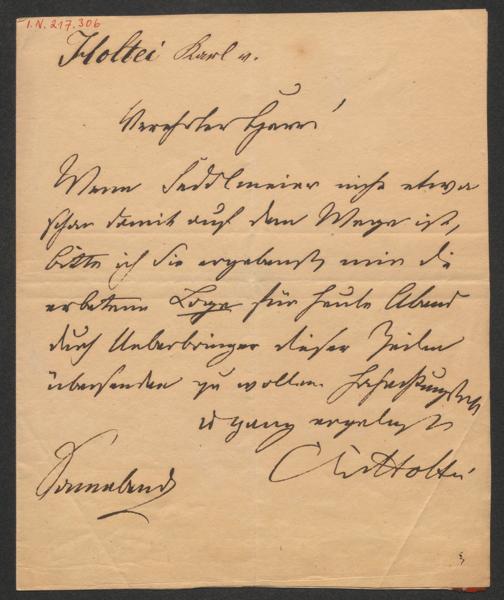 I.N. 217.306
Holtei Karl v.
Verehrter Herr!
Wenn Sedlmeier nicht etwa
schon damit auf dem Wege ist,
bitte ich Sie ergebenst mir die
erbetene Loge für heute Abend
durch Ueberbringer dieser Zeilen
übersenden zu wollen. Hochachtungsvoll
ganz ergebenst
Holtei
Sonnabend